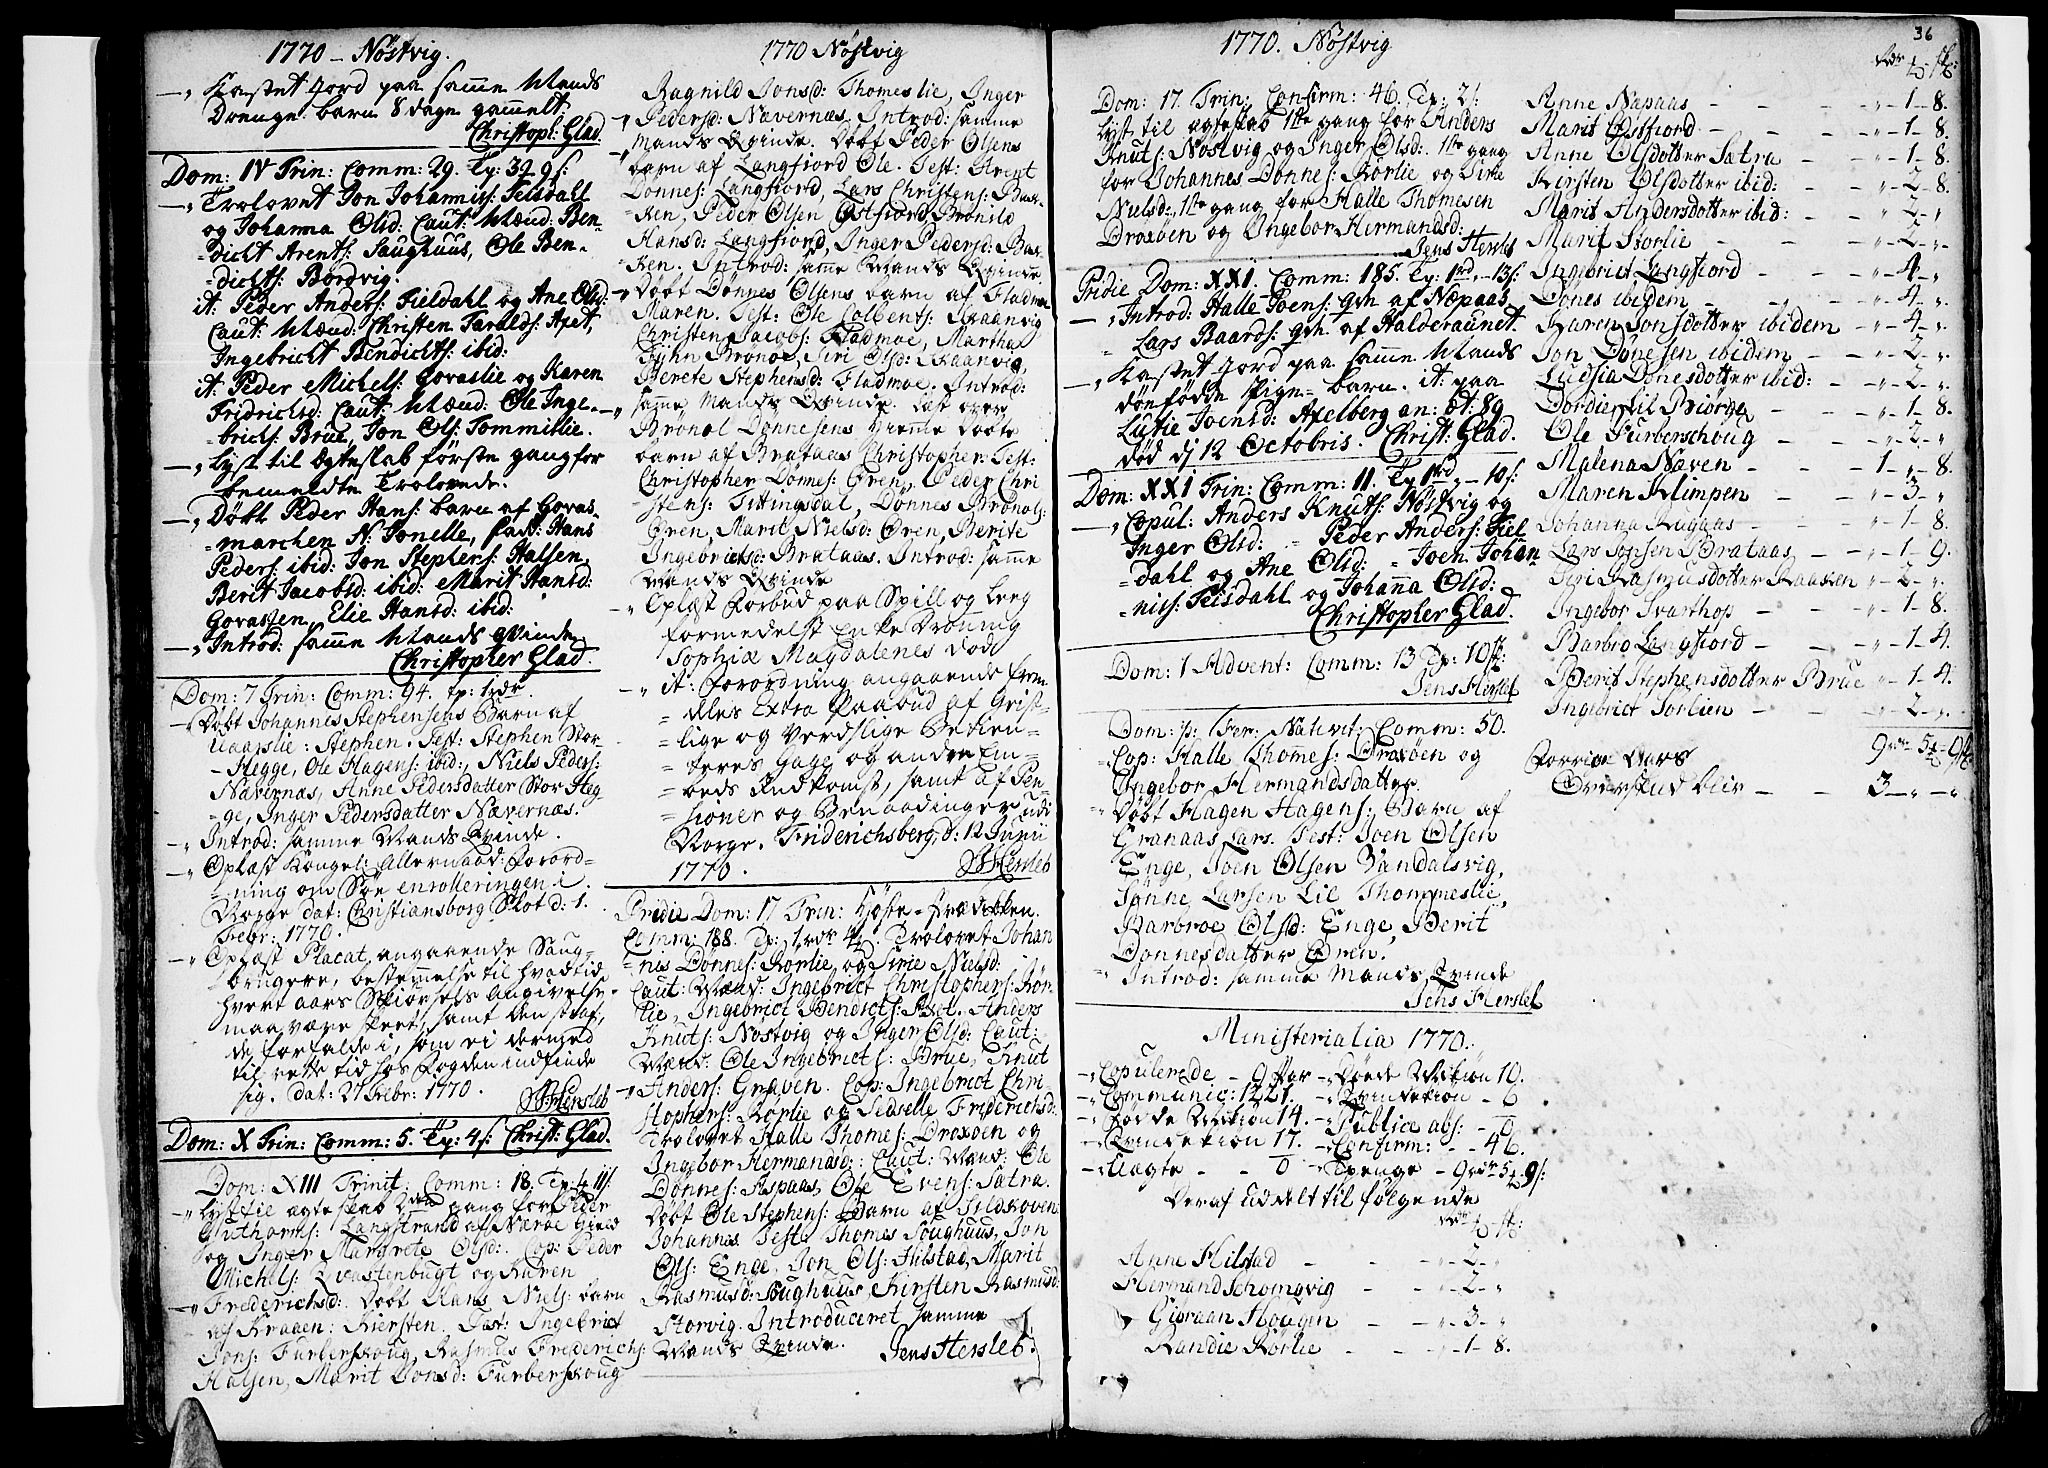 1770 – Nöstvig.
–„ Kastet Jord paa samme Mands
Drenge barn 8 dage gammelt,
Christoph: Glad.
Dom: IV Trin: Comm: 29. Tp:
–„ Trolovet Jon Johannits: Feisdahl
og Johanna Olsd: Caut: Mænd: Ben-
=dicht Arents: Saughuus, Ole Ben-
=dichts: Bordvig.
it: Peder Anders: Fieldahl og Ane Olsd:
Caut: Mænd: Christen Faralds: Axet,
Ingebricht Bendichts: ibid:
it: Peder Michels: Govaslie og Karen
Fridrichsd: Caut: Mænd: Ole Inge-
=brichs: Brue, Jon Ols: Tommislie.
–„ Lyst til Ægteskab første gang for
bemeldte Trolovede.
–„ Døbt Peder Hans: barn af Govas-
=marchen N: Jonelle, fad: Hans
Peders: ibid: Jon Stephens: Halsen,
Berit Jacobsd: ibid: Marit Hansd:
Govassen, Elie Hansd: ibid:
–„ Introd: samme Mands qvinde
Christopher Glad.
Dom: 7 Trin: Comm: 94. Tp: 1rdr.
–„ Døbt Johannes Stephensens Barn af
Aaarslie: Stephen. Test: Stephen Stor-
-Hegge, Ole Hagens: ibid:, Niels Peders:
Nævernæs, Anne Pedersdatter Stor Heg
-ge, Inger Pedersdatter Nævernæs.
–„ Introd: samme Mands Qvinde.
–„ Oplæst Kongel: Allernaad: Forord-
=ning om Søe enrolleringen i
Norge dat: Christiansborg Slot d: 1.
Febr: 1770.
–„ Oplæst Placat angaaende Saug-
brugere, bestemmelse til hvad tid
hvert aars Skiørsels Angivelse
maa være skeet, samt den straf,
de forfalde i, som ei dermed
til rette tid hos Fogden indfinde
sig. Dat: 21 Febr: 1770.
JHersleb
Dom: X Trin: Comm: 5. Tp: 4 s: Christ: Glad.
Dom: XIII Trinit: Comm: 18. Tp:
–„ Lyst til ægteskab 2den gang for Peder
Guthorms: Langstrand af Nærøe Gield
og Inger Margrete Olsd:. Cop: Peder
Michels: Qvastenbugt og Karen
–„ Frederichsd:. Døbt Hans Niels: barn
af Kraaen: Kiersten. Test: Ingebrict
Jons: Furberskoug, Rasmus Frederichs:
Halsen, Marit Jonsd: Furberskoug
1770 Nöstvig
Ragnild Jonsd: Thomeslie, Inger
Pedersd: Nævernæs, Introd: samme
Mands Qvinde. Døbt Peder Olsens
barn af Langfiord Ole. Test: Arent
Dönnes: Langfiord, Lars Christens: Bak-
=ken, Peder Olsen Østfiord, Bronild
Hansd: Langfiord, Inger Pedersd: Bak-
ken. Introd: samme Mands Qvinde
Døbt Dönnes Olsens barn af Fladmoe
Maren. Test: Ole Colbents: Qvaanvig
Christen Jacobs: Fladmoe, Martha
Brønøl, Siri Olsd: Qvaanvig,
Berete Stephensd: Fladmoe. Introd:
samme Mands Qvinde. Læst over
Bronøl Dönnesens hiemme døbte
barn af Brataas Christopher: Test:
Christopher Dönnes: Øren, Peder Chri
stens: Tittingsdal, Dönnes Brønøls:
Øren, Marit Nielsd: Øren, Berite
Ingebrictsd: Brataas. Introd: samme
Mands Qvinde
–„ Oplæst Forbud paa Spill og Leeg
formedelst Enke Droning
Sophiæ Magdalenes Død.
–„ it: Forordning angaaende frem-
=delles Extra Paabud af Geist-
=lige og Verdslige Betien-
=teres Gage og anden Em-
=beds Indkomst, samt af Pen-
=sioner og Benaadinger udi
Norge. Friderichsberg d: 12 Junii
1770.
JHersleb
Pridie Dom: 17 Trin: Høste-Prædiken.
Comm: 188. Tp: 1 rdr Trolovet Johan
=nis Dönnes: Rorlie og Sirie Nielsd:
Caut: Mænd: Ingebrict Christophers: Rör-
lie, Ingebrict Bendicts: Axet. Anders
Knuts: Nöstvig og Inger Olsd: Caut:
Mænd: Ole Ingebricts: Brue, Knut
–„ Anders: Graven. Cop: Ingebrict Chri-
stophers: Rorlie og Sedselle Friderichsd:
Trolovet Halle Thomes: Droxöen og
Ingebor Hermansd:: Caut: Mænd: Ole
Dönnes: Aspaas, Ole Evens: Sætra.
Døbt Ole Stephens: Barn af Sildhoven
Johannes. Test: Thomes Soughuus, Jon
Ols: Enge, Jon Ols: Hilstad, Marit
Rasmusd: Soughuus, Kirsten Rasmusd:
Storvig. Introduceret samme
Mands Qvinde.
Jens Hersleb.
1770. Nöstvig
Dom: 17. Trin: Confirm: 46. Tp: 2 s:
Lyst til ægteskab 1ste gang for Anders
Knuts: Nöstvig og Inger Olsd:. 1ste gang
for Johannes Dönnes: Rörlie og Sirie
Nielsd:, 1ste gang for Halle Thomesen
Droxöen og Ingebor Hermandsd:
Jens Hersleb
Pridie Dom: XXI. Comm: 185. Tp: 1rd. – 13 s:
–„ Introd: Halle Joens: qvn af Næpaas,
„ Lars Baards: qvn. af Halderaunet.
–„ Kastet Jord paa samme Mands
dønfødde Pige-barn. it: paa
Lutie Joensd: Axelberg an: æt: 89
død dj 12 Octobris. Christ: Glad.
Dom: XXI Trin: Comm: 11. Tp 1rd – 10 s:
–„ Copul: Anders Knuts: Nöstvig og
Inger Olsd: = Peder Anders: Fiel
=dahl og Ane Olsd: = Joen Johan
=nits: Feisdahl og Johanna Olsd:
Christopher Glad.
Dom: 1 Advent: Comm: 13 Tp: 10 s:
Jens Hersleb
Dom: p: Fer: Nativit: Comm: 50.
Cop: Halle Thomes: Droxöen og
Ingebor Hermandsdatter.
Døbt Hagen Hagens: Barn af
Granaas Lars. Test: Joen Olsen
Enge, Joen Olsen Vandalsvig,
Sönne Larsen Lil Thommeslie,
Barbroe Olsd: Enge, Berit
Donnesdatter Øren.
„ Introd: samme Mands Qvinde
Jens Hersleb
Ministerialia 1770.
–„ Copulerede – 9 Par –„ Døde Mkiön 10.
–„ Communic: 1221. –„ Qvindekiön – 6
–„ Fødde Mkiön 14. –„ Publicæ abs: – 0
–„ Qvindekiön 17. –„ Confirm: – – 46.
–„ Uægte – – 0 –„ Tpenge – 9 rdr 5 – 9 s:
Deraf uddelt til følgende
Anne Hilstad – – – „ – 2 – „
Hermand Schomovig – – „ – 2 – „
Giöraan Hougen – – „ – 3 – „
Randie Rörlie – – – „ – 1 – 8.
36
Anne Næpaas – – – „ – 1 – 8.
Marit Østfiord – – – „ – 1 – 8.
Anne Olsdotter Sætra – – „ – 1 – 8.
Kirsten Olsdotter ibid: – – „ – 2 – 8.
Marit Andersdotter ibid: – – „ – 2 – „
Marit Storlie – – – „ – 2 – „
Ingebrict Langfiord – – – „ – 4 – „
Dönes ibidem – – – „ – 4 – „
Karen Jonsdotter ibidem – „ – 4 – „
Jon Dönesen ibidem – – „ – 2 – „
Ludsia Dönesdotter ibid: – – „ – 2 – „
Dordie Lil Biörge – – – „ – 1 – 8.
Ole Furberschoug – – – „ – 2 – „
Malena Næven – – – 1 – „ – 8.
Maren Klimpen – – – „ – 3 – „
Johanna Rugaas – – – „ – 1 – 8.
Lars Jonsen Brataas – – „ – 1 – 9.
Siri Rasmusdotter Kaasen „ – 2 – „
Ingebor Svarthop – – – „ – 1 – 8.
Barbro Langfiord – – – „ – 1 – 4.
Berit Stephensdotter Brue „ – 1 – 4.
Ingebrict Sorlien – – – „ – 2 – „
9 rdr 5 – 9
Forrige Aars
Overskud blir – – 3 – „ – „